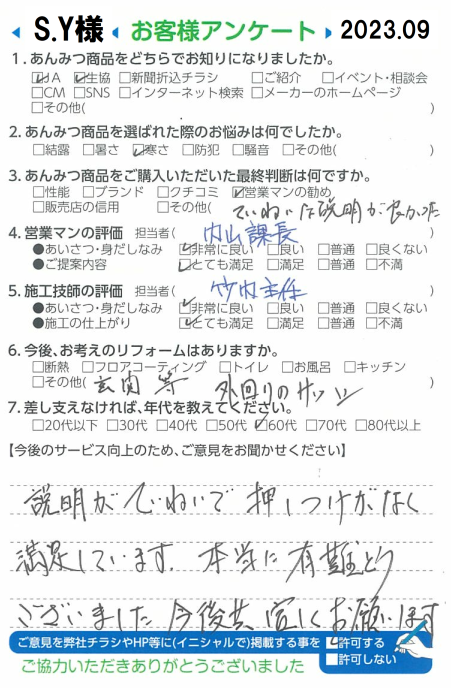 S.Y様 お客様アンケート 2023.09
1.あんみつ商品をどちらでお知りになりましたか。
☑JA ☑生協 □新聞折込チラシ □ご紹介 □イベント・相談会
□CM □SNS □インターネット検索 □メーカーのホームページ
□その他( )
2.あんみつ商品を選ばれた際のお悩みは何でしたか。
□結露 □暑さ ☑寒さ □防犯 □騒音 □その他( )
3.あんみつ商品をご購入いただいた最終判断は何ですか。
□性能 □ブランド □クチコミ ☑営業マンの勧め
□販売店の信用 □その他( ていねいな説明が良かった
4.営業マンの評価 担当者( 内山課長 )
●あいさつ・身だしなみ ☑非常に良い □良い □普通 □良くない
●ご提案内容 ☑とても満足 □満足 □普通 □不満
5.施工技師の評価 担当者( 竹内主任 )
●あいさつ・身だしなみ ☑非常に良い □良い □普通 □良くない
●施工の仕上がり ☑とても満足 □満足 □普通 □不満
6.今後、お考えのリフォームはありますか。
□断熱 □フロアコーティング □トイレ □お風呂 □キッチン
□その他( 玄関等 外回りのサッシ )
7.差し支えなければ、年代を教えてください。
□20代以下 □30代 □40代 □50代 ☑60代 □70代 □80代以上
【今後のサービス向上のため、ご意見をお聞かせください】
説明がていねいで押しつけがなく
満足しています。本当に有難とう
ございました 今後共宜しくお願います
ご意見を弊社チラシやHP等に(イニシャルで)掲載する事を ☑許可する
□許可しない
ご協力いただきありがとうございました